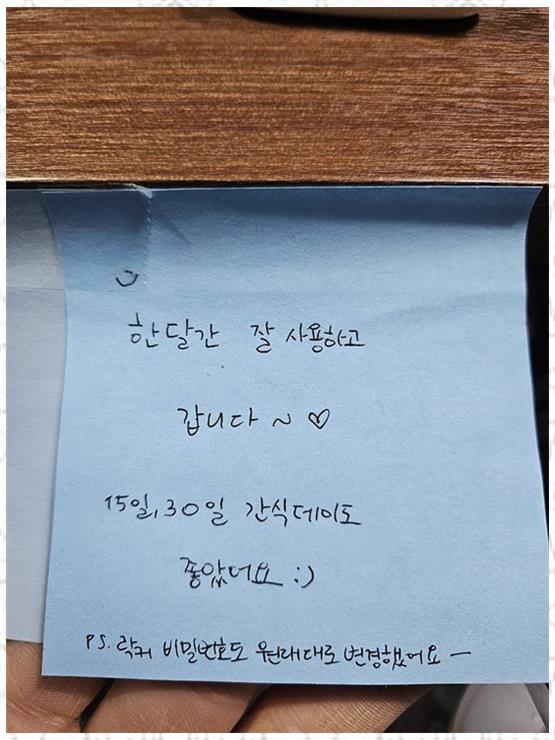 한달간 잘 사용하고
갑니다 ~ ♡
15일, 30일 간식데이도
좋았어요 :)
PS. 락커 비밀번호도 원래대로 변경했어요 ㅡ